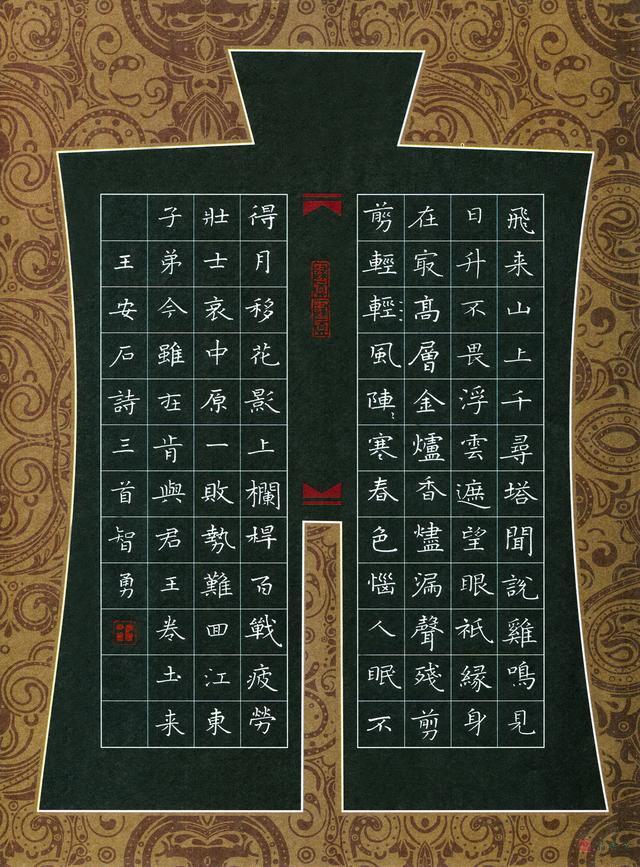 飛来山上千尋塔聞說雞鳴見
日升不畏浮雲遮望眼祇緣身
在㝡髙層金爐香燼漏聲殘剪
剪輕輕風陣〻寒春色惱人眠不
得月移花影上欄桿百戰疲勞
壯士哀中原一敗勢難回江東
子弟今雖在肯與君王卷土来
王安石詩三首智勇